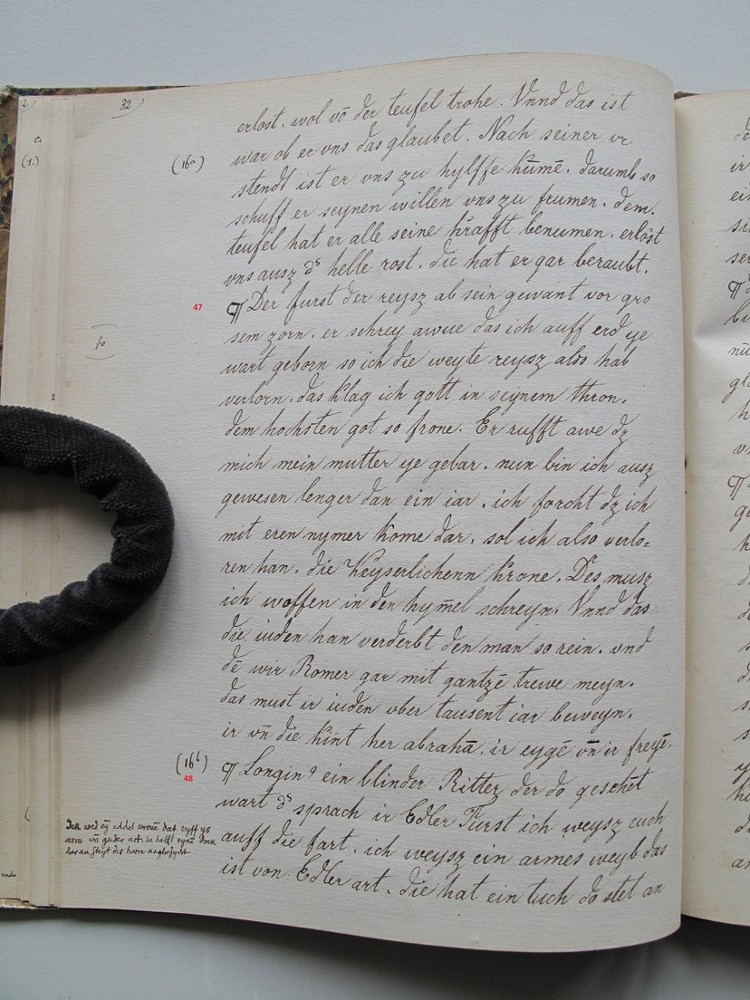 32)
erlost. wol vō der teufel trohe. Vnnd das ist
war ob er vns das glaubet. Nach seiner vr
(16a)
stendt ist er vns zu hylffe kūmē. darumb so
schuff er seynen willen vns zu frumen. dem.
teufel hat er alle seine krafft benumen. erlöst
vns ausz ds helle rost. die hat er gar beraubt.
47
¶ Der furst der reysz ab sein gewant vor gro
sem zorn. er schrey awue das ich auff erd ye
wart geborn so ich die weyte reysz also hab
verlorn. das klag ich gott in seynem thron.
dem hochsten got so frone. Er rufft awe dz
mich mein mutter ye gebar. nun bin ich ausz
gewesen lenger dan ein iar. ich forcht dz ich
mit eren nymer kome dar. sol ich also verlo=
ren han. die Keyserlichenn krone. Des musz
ich woffen in den hym̄el schreyn. Vnnd das
die iuden han verderbt den man so rein. vnd
dē wir Romer gar mit gantzē trewe meyn.
das must ir iuden vber tausent iar beweyn.
ir vn̄ die kint her abrahā. ir eygē vn̄ ir freyē.
(16b)
48
¶ Longin9 ein blinder Ritter der do geschēt
wart ds sprach ir Edler Furst ich weysz euch
auff die fart. ich weysz ein armes weyb das
ist von Edler art. die hat ein tuch do stet an